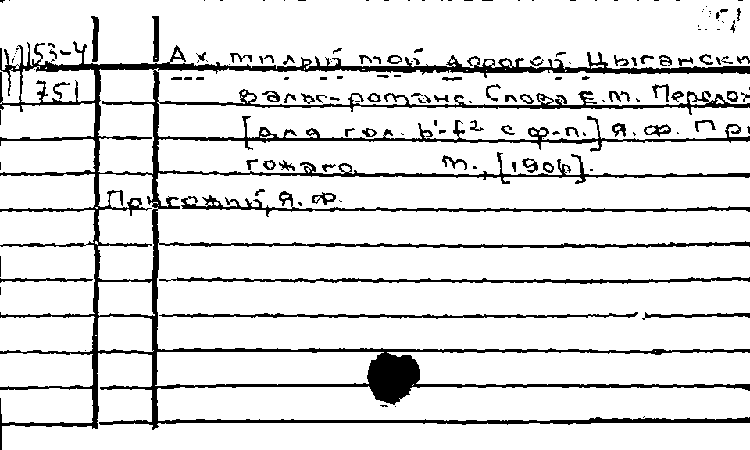 53-4 Ах, милый мой дорогой. Цыгански
751 вальс-романс. Слова Е.М. Перелож
[для гол. b¹-f² с ф-п.] Я. Ф. При
гожаго. М., [1906].
Пригожий, Я. Ф.